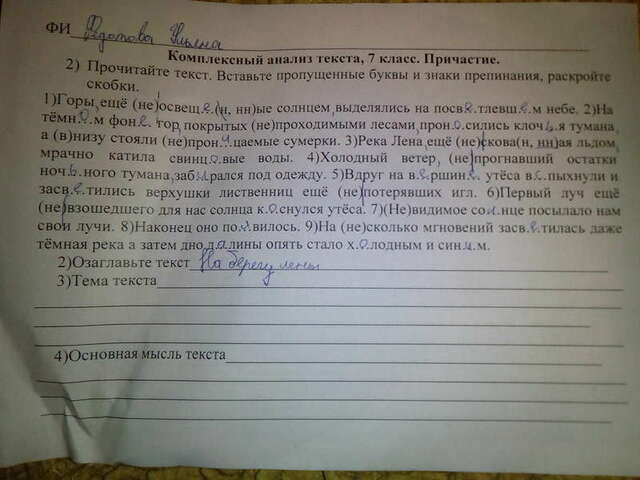 ФИ Федотова Ульяна
Комплексный анализ текста, 7 класс. Причастие.
2) Прочитайте текст. Вставьте пропущенные буквы и знаки препинания, раскройте
скобки.
1)Горы, ещё (не)освещ.е.(н, нн)ые солнцем, выделялись на посв.е.тлевш.е.м небе. 2)На
тёмн.о.м фон.е. гор, покрытых (не)проходимыми лесами, прон.о.сились клоч.ь.я тумана,
а (в)низу стояли (не)прон.и.цаемые сумерки. 3)Река Лена, ещё (не)скова(н, нн)ая льдом,
мрачно катила свинц.о.вые воды. 4)Холодный ветер, (не)прогнавший остатки
ноч.ь.ного тумана, заб.и.рался под одежду. 5)Вдруг на в.е.ршин.е. утёса в.с.пыхнули и
засв.е.тились верхушки лиственниц ещё (не)потерявших игл. 6)Первый луч ещё
(не)взошедшего для нас солнца к.о.снулся утёса. 7)(Не)видимое со.л.нце посылало нам
свои лучи. 8)Наконец оно по.я.вилось. 9)На (не)сколько мгновений засв.е.тилась даже
тёмная река а затем дно д.а.лины опять стало х.о.лодным и син.и.м.
2)Озаглавьте текст На берегу лены
3)Тема текста
4)Основная мысль текста